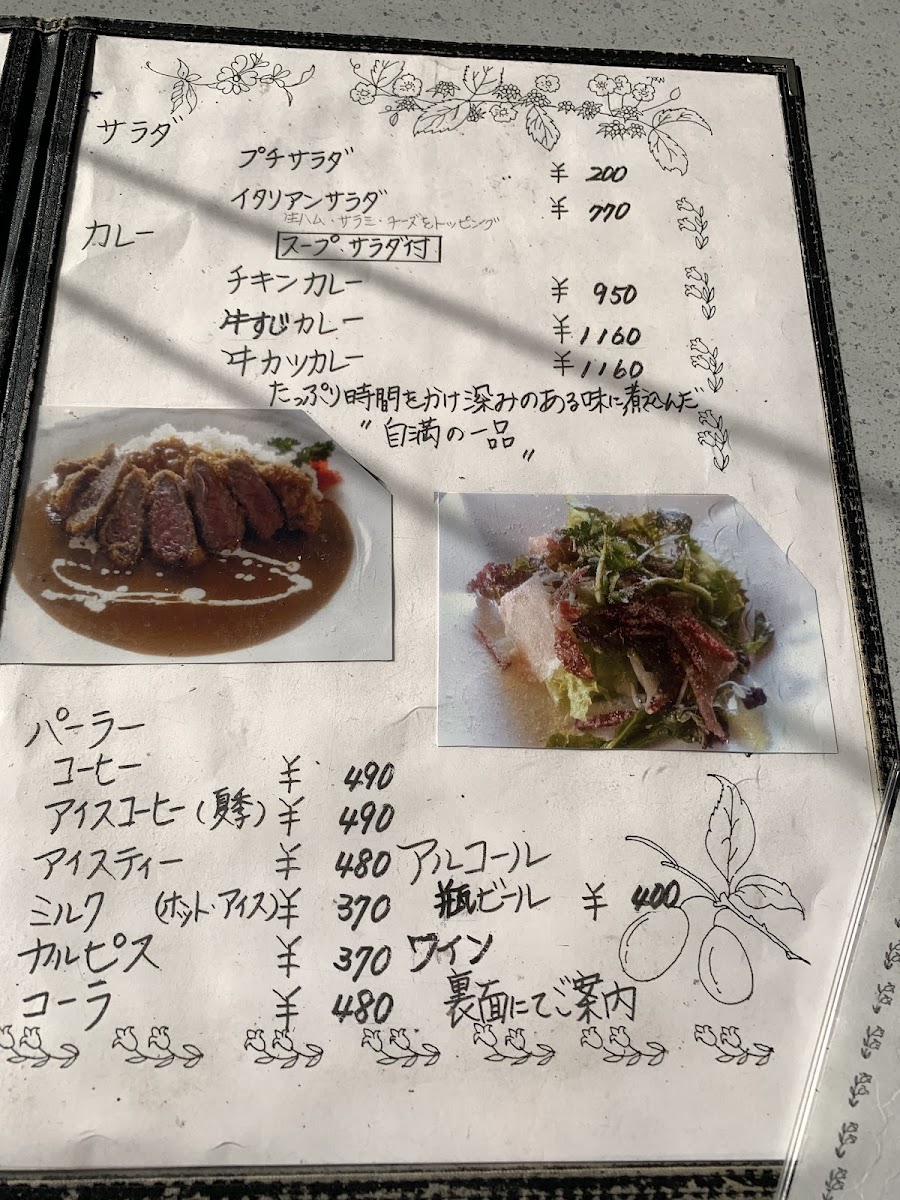 サラダ
プチサラダ ¥ 200
イタリアンサラダ ¥ 770
生ハム・サラミ・チーズをトッピング
カレー
スープ・サラダ付
チキンカレー ¥ 950
牛すじカレー ¥ 1160
牛カツカレー ¥ 1160
たっぷり時間をかけ深みのある味に煮込んだ
"自満の一品"
パーラー
コーヒー ¥ 490
アイスコーヒー(夏季) ¥ 490
アイスティー ¥ 480
ミルク (ホット・アイス) ¥ 370
カルピス ¥ 370
コーラ ¥ 480
アルコール
瓶ビール ¥ 400
ワイン
裏面にてご案内